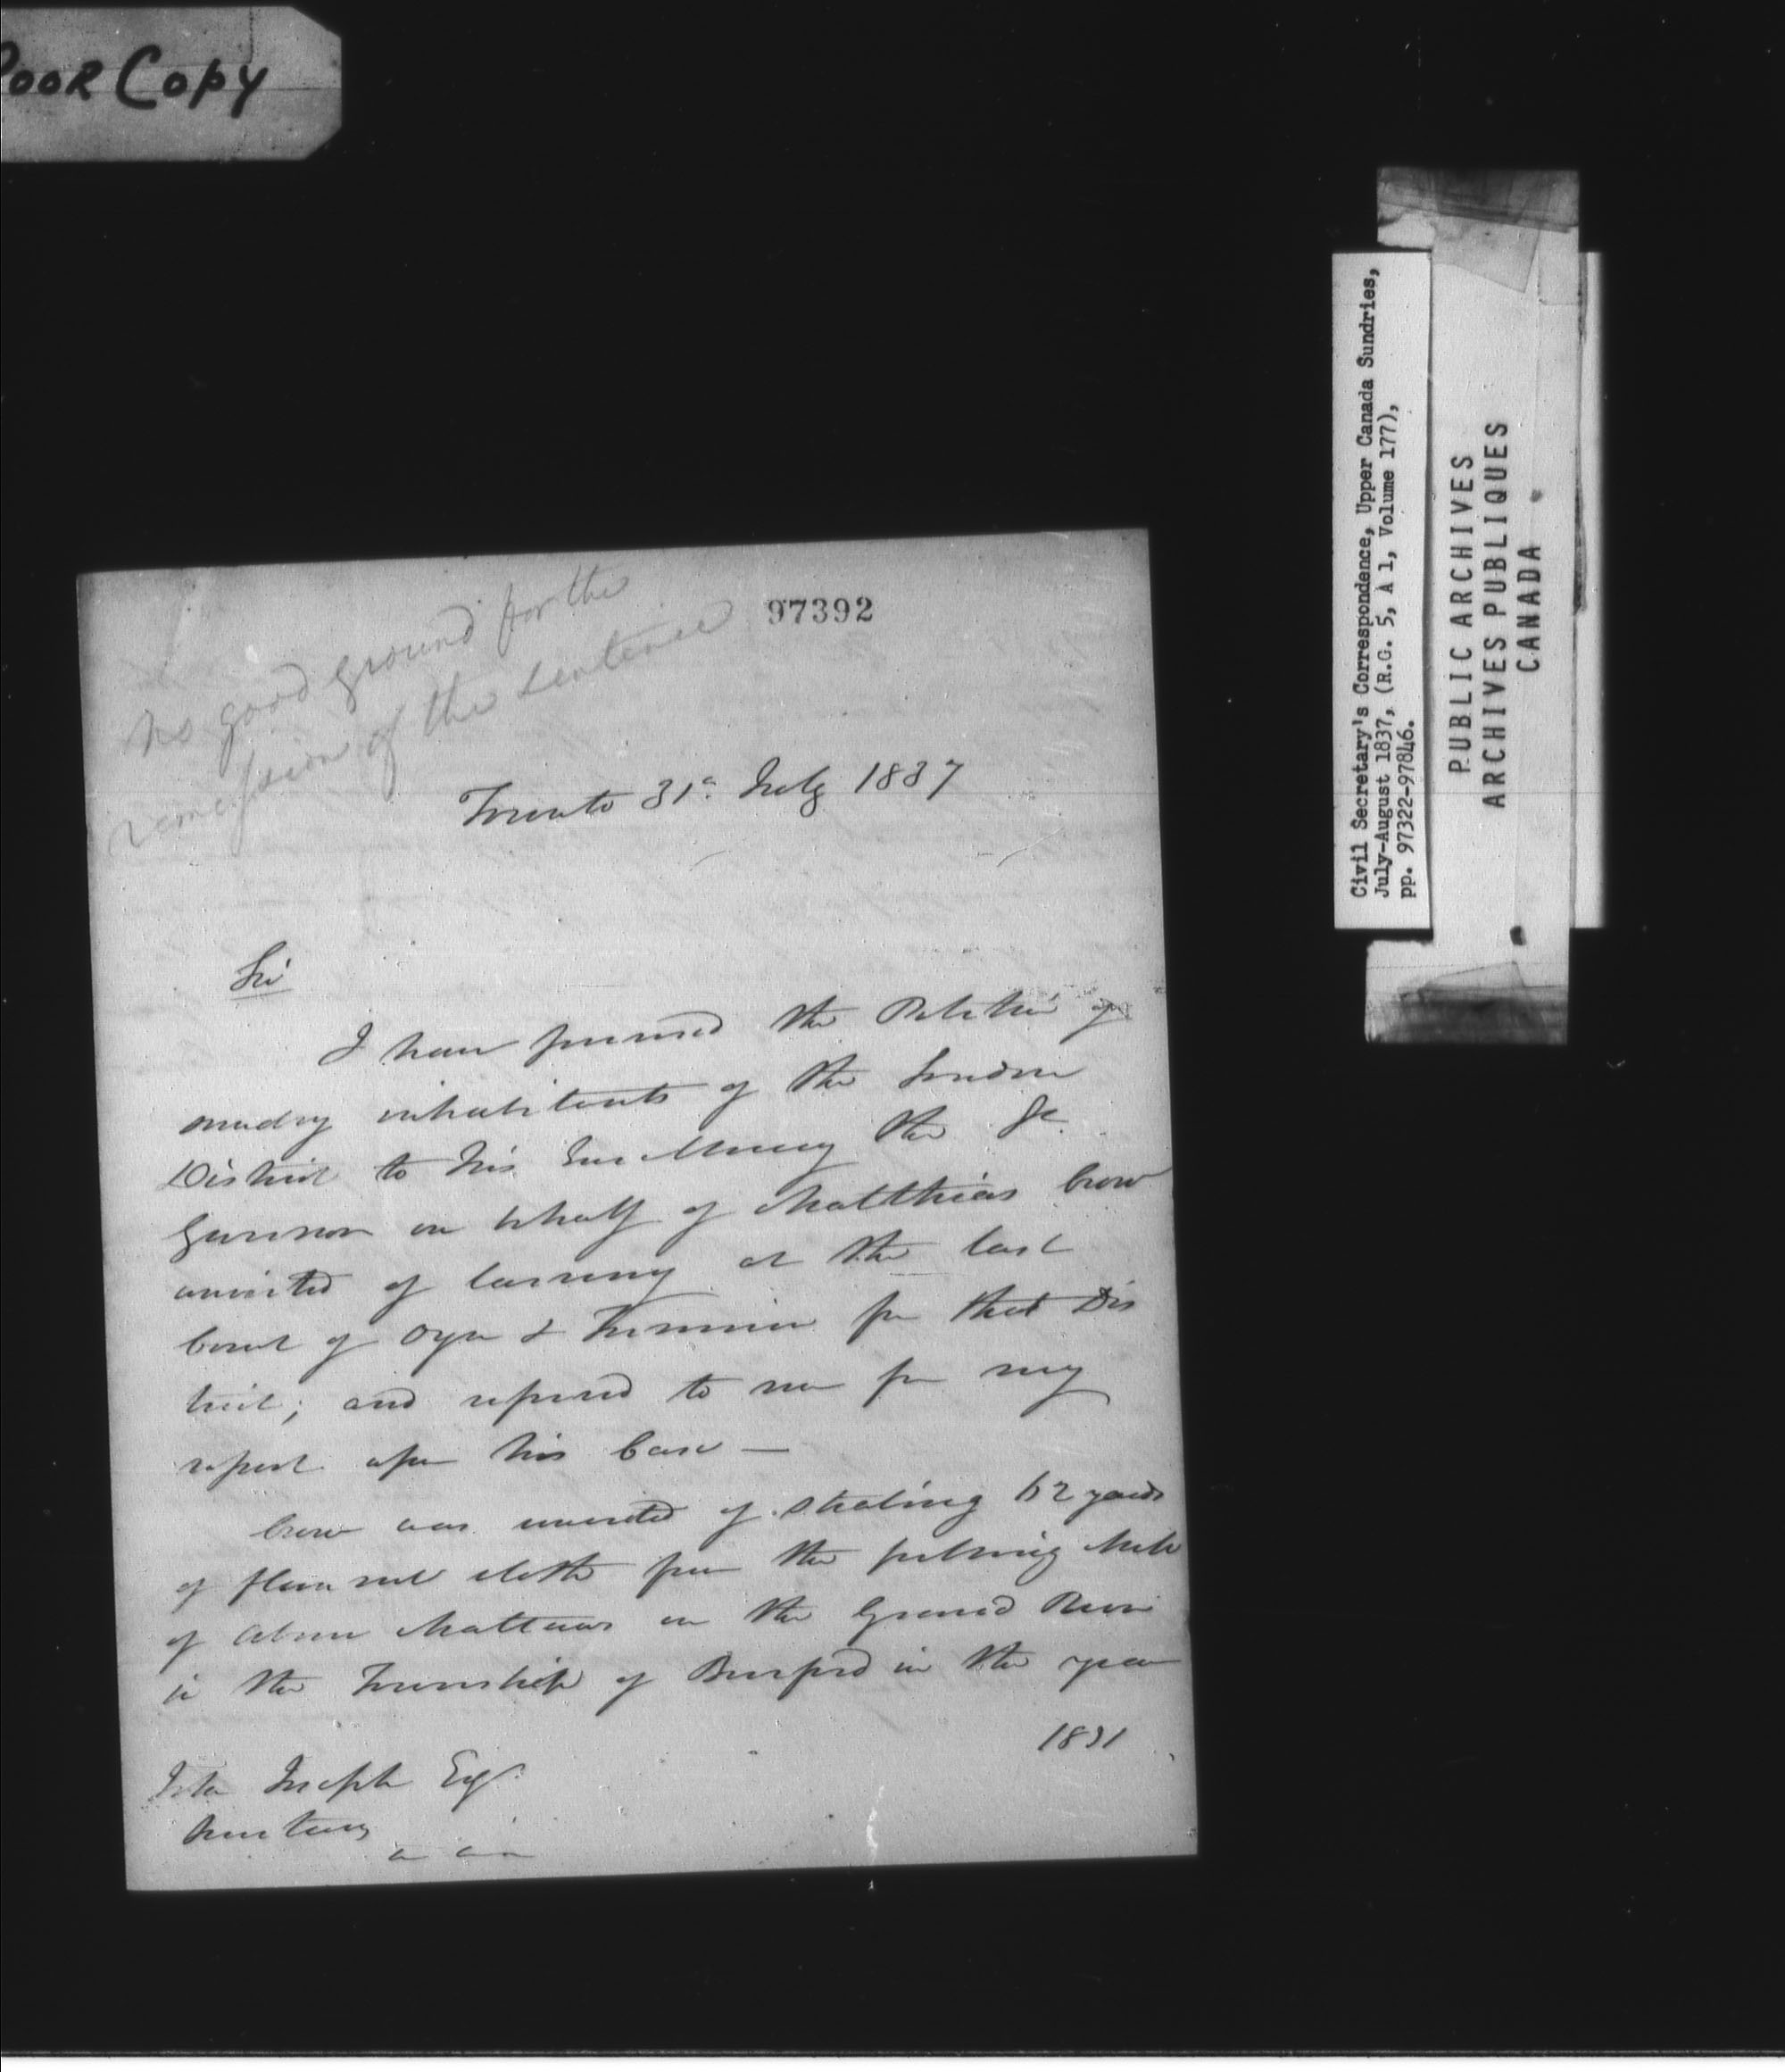 Poor Copy
97392
No good ground for the
remission of the sentence
Toronto 31st July 1837
Sir
I have perused the Petition of
sundry inhabitants of the London
District to His Excellency the Lt.
Governor on behalf of Matthias Crow
convicted of larceny at the last
Court of Oyer & Terminer for that Dis
trict; and referred to me for my
report upon his Case —
Crow was convicted of stealing 62 yards
of flannel cloth from the fulling Mill
of Abner Matthews on the Grand River
in the Township of Burford in the year
1831
John Joseph Esqr
Secretary
Civil Secretary's Correspondence, Upper Canada Sundries,
July-August 1837, (R.G. 5, A 1, Volume 177),
pp. 97322-97846.
PUBLIC ARCHIVES
ARCHIVES PUBLIQUES
CANADA